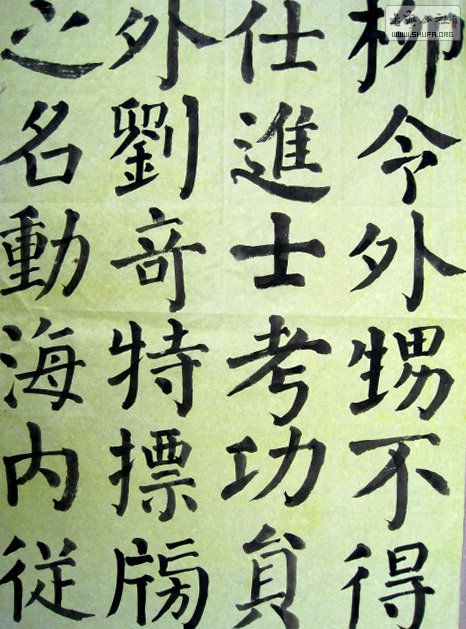 柳令外甥不得
仕進士考功貟
外劉竒特摽牓
之名動海内従
WWW.SHUFA.ORG